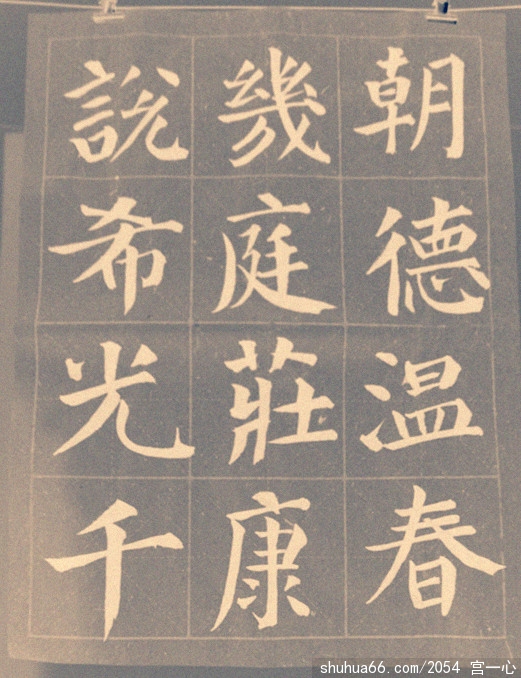 朝德温春
幾庭莊康
說希光千
shuhua66.com/2054 宫一心